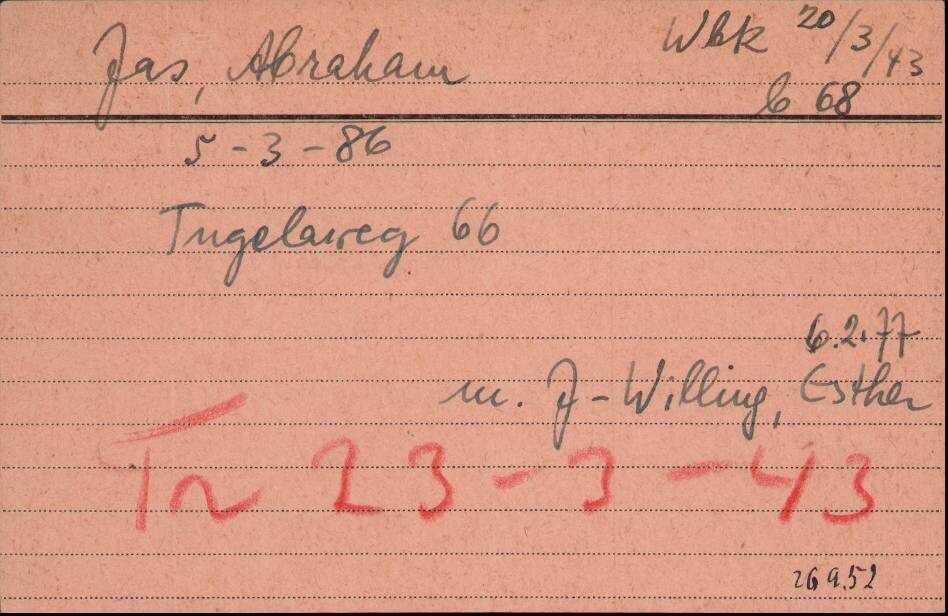 Jas, Abraham
Wbk 20/3/43
b 68
5-3-86
Tugelaweg 66
6.2.77
m. J-Willing, Esther
Tr 23-3-43
26952